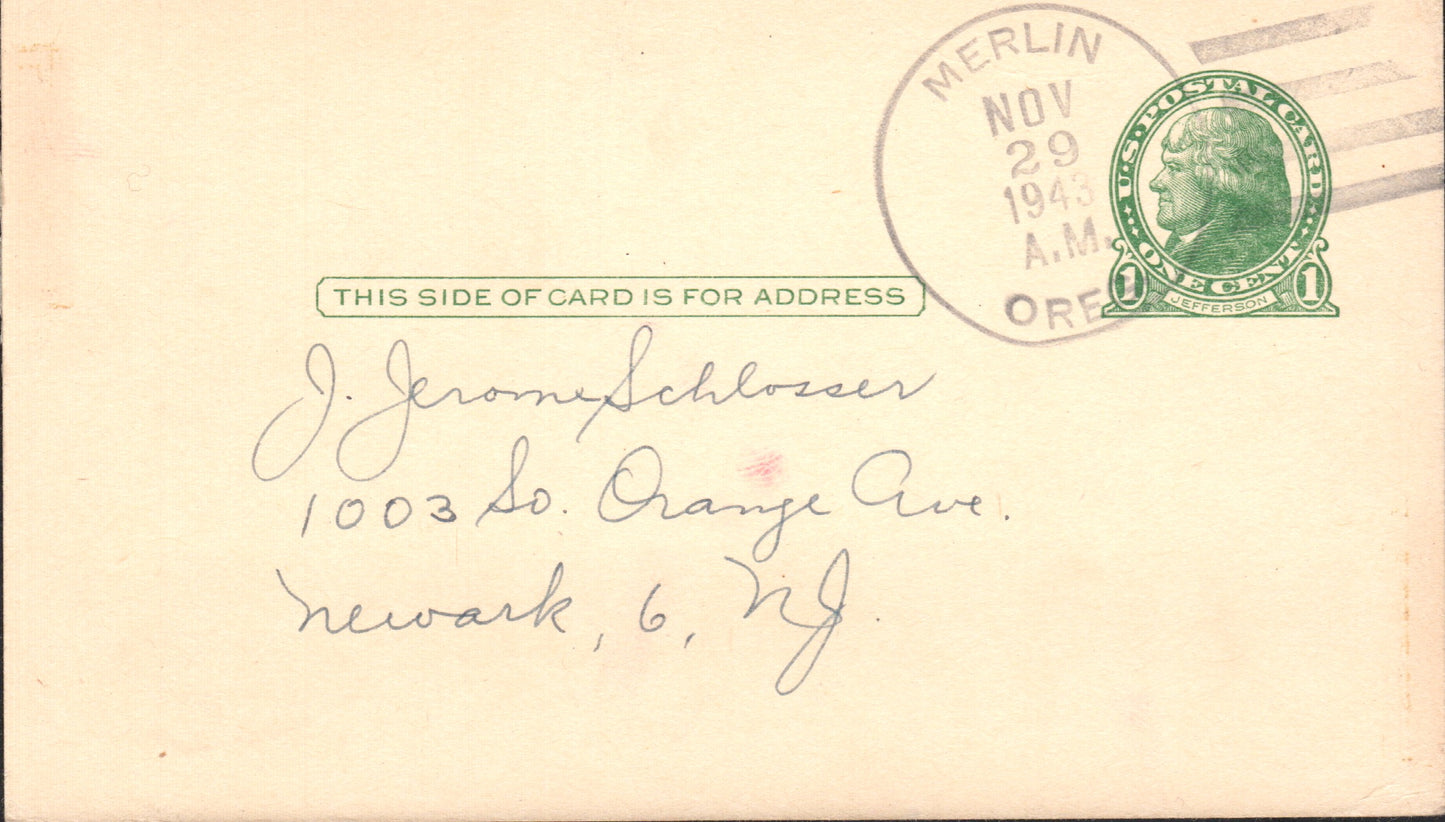 MERLIN
NOV
29
1943
A.M.
OREG
U.S. POSTAL CARD
ONE CENT
1 JEFFERSON 1
THIS SIDE OF CARD IS FOR ADDRESS
J. Jerome Schlosser
1003 So. Orange Ave.
Newark, 6, NJ.